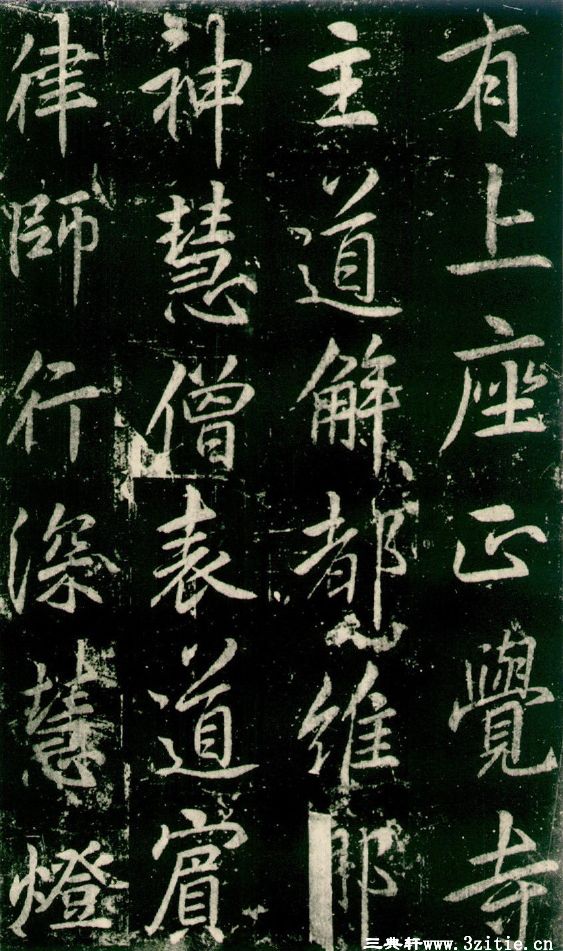 有上座正覺寺
主道解都維那
神慧僧表道賓
律師行深慧燈
三典軒www.3zitie.cn